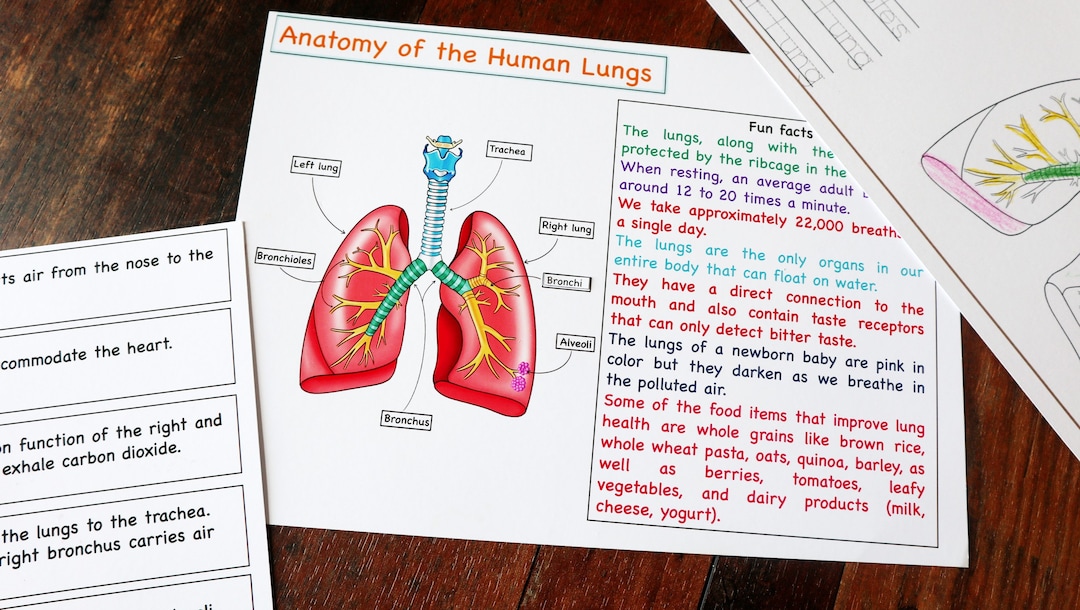 Anatomy of the Human Lungs
Left lung
Trachea
Right lung
Bronchioles
Bronchi
Alveoli
Bronchus
Fun facts
The lungs, along with the
protected by the ribcage in the
When resting, an average adult
around 12 to 20 times a minute.
We take approximately 22,000 breaths
a single day.
The lungs are the only organs in our
entire body that can float on water.
They have a direct connection to the
mouth and also contain taste receptors
that can only detect bitter taste.
The lungs of a newborn baby are pink in
color but they darken as we breathe in
the polluted air.
Some of the food items that improve lung
health are whole grains like brown rice,
whole wheat pasta, oats, quinoa, barley, as
well as berries, tomatoes, leafy
vegetables, and dairy products (milk,
cheese, yogurt).
ts air from the nose to the
commodate the heart.
on function of the right and
exhale carbon dioxide.
the lungs to the trachea.
right bronchus carries air